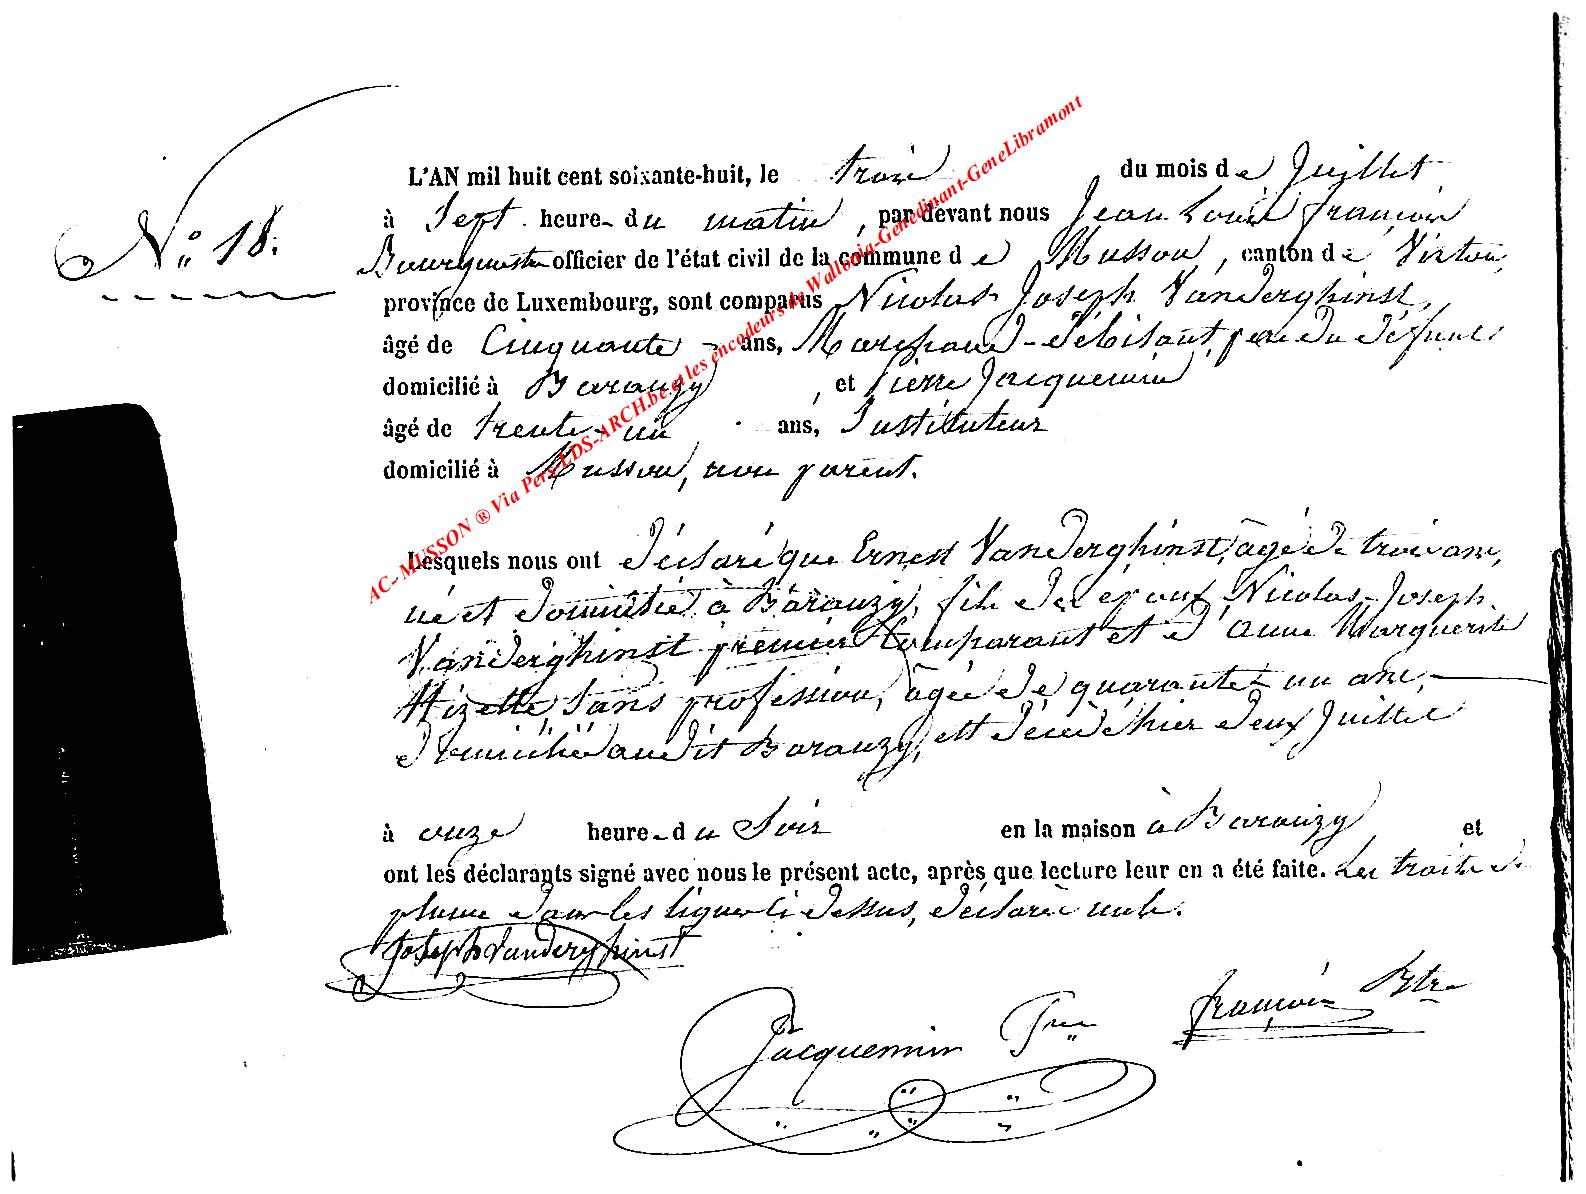 L'AN mil huit cent soixante-huit, le trois du mois de Juillet
à Sept heure- du matin, par devant nous Jean Louis François
N° 18.
Bourgmestre officier de l'état civil de la commune de Musson, canton de Virton,
province de Luxembourg, sont comparus Nicolas Joseph Vanderghinst,
âgé de Cinquante ans, Marchand-débitant, père du défunt
domicilié à Baranzy, et Pierre Jacquemin
âgé de trente-un ans, Instituteur
domicilié à Musson, non parent.
AC-MUSSON ® Via Pers LDS-ARCH.be et les encodeurs de Wallonia-Genedinant-GeneLibramont
Lesquels nous ont déclaré que Ernest Vanderghinst, âgé de trois ans,
né et domicilié à Baranzy, fils des epoux Nicolas-Joseph
Vanderghinst premier Comparant et d'anne Marguerite
Mizette, Sans profession, âgée de quarante un ans,
domiciliés audit Baranzy, est décédé hier deux Juillet
à onze heure-du Soir en la maison à Baranzy et
ont les déclarants signé avec nous le présent acte, après que lecture leur en a été faite. Les traits de
plume dans les lignes ci dessus, déclarés nuls.
Joseph Vanderghinst
Jacquemin Pre François Btre